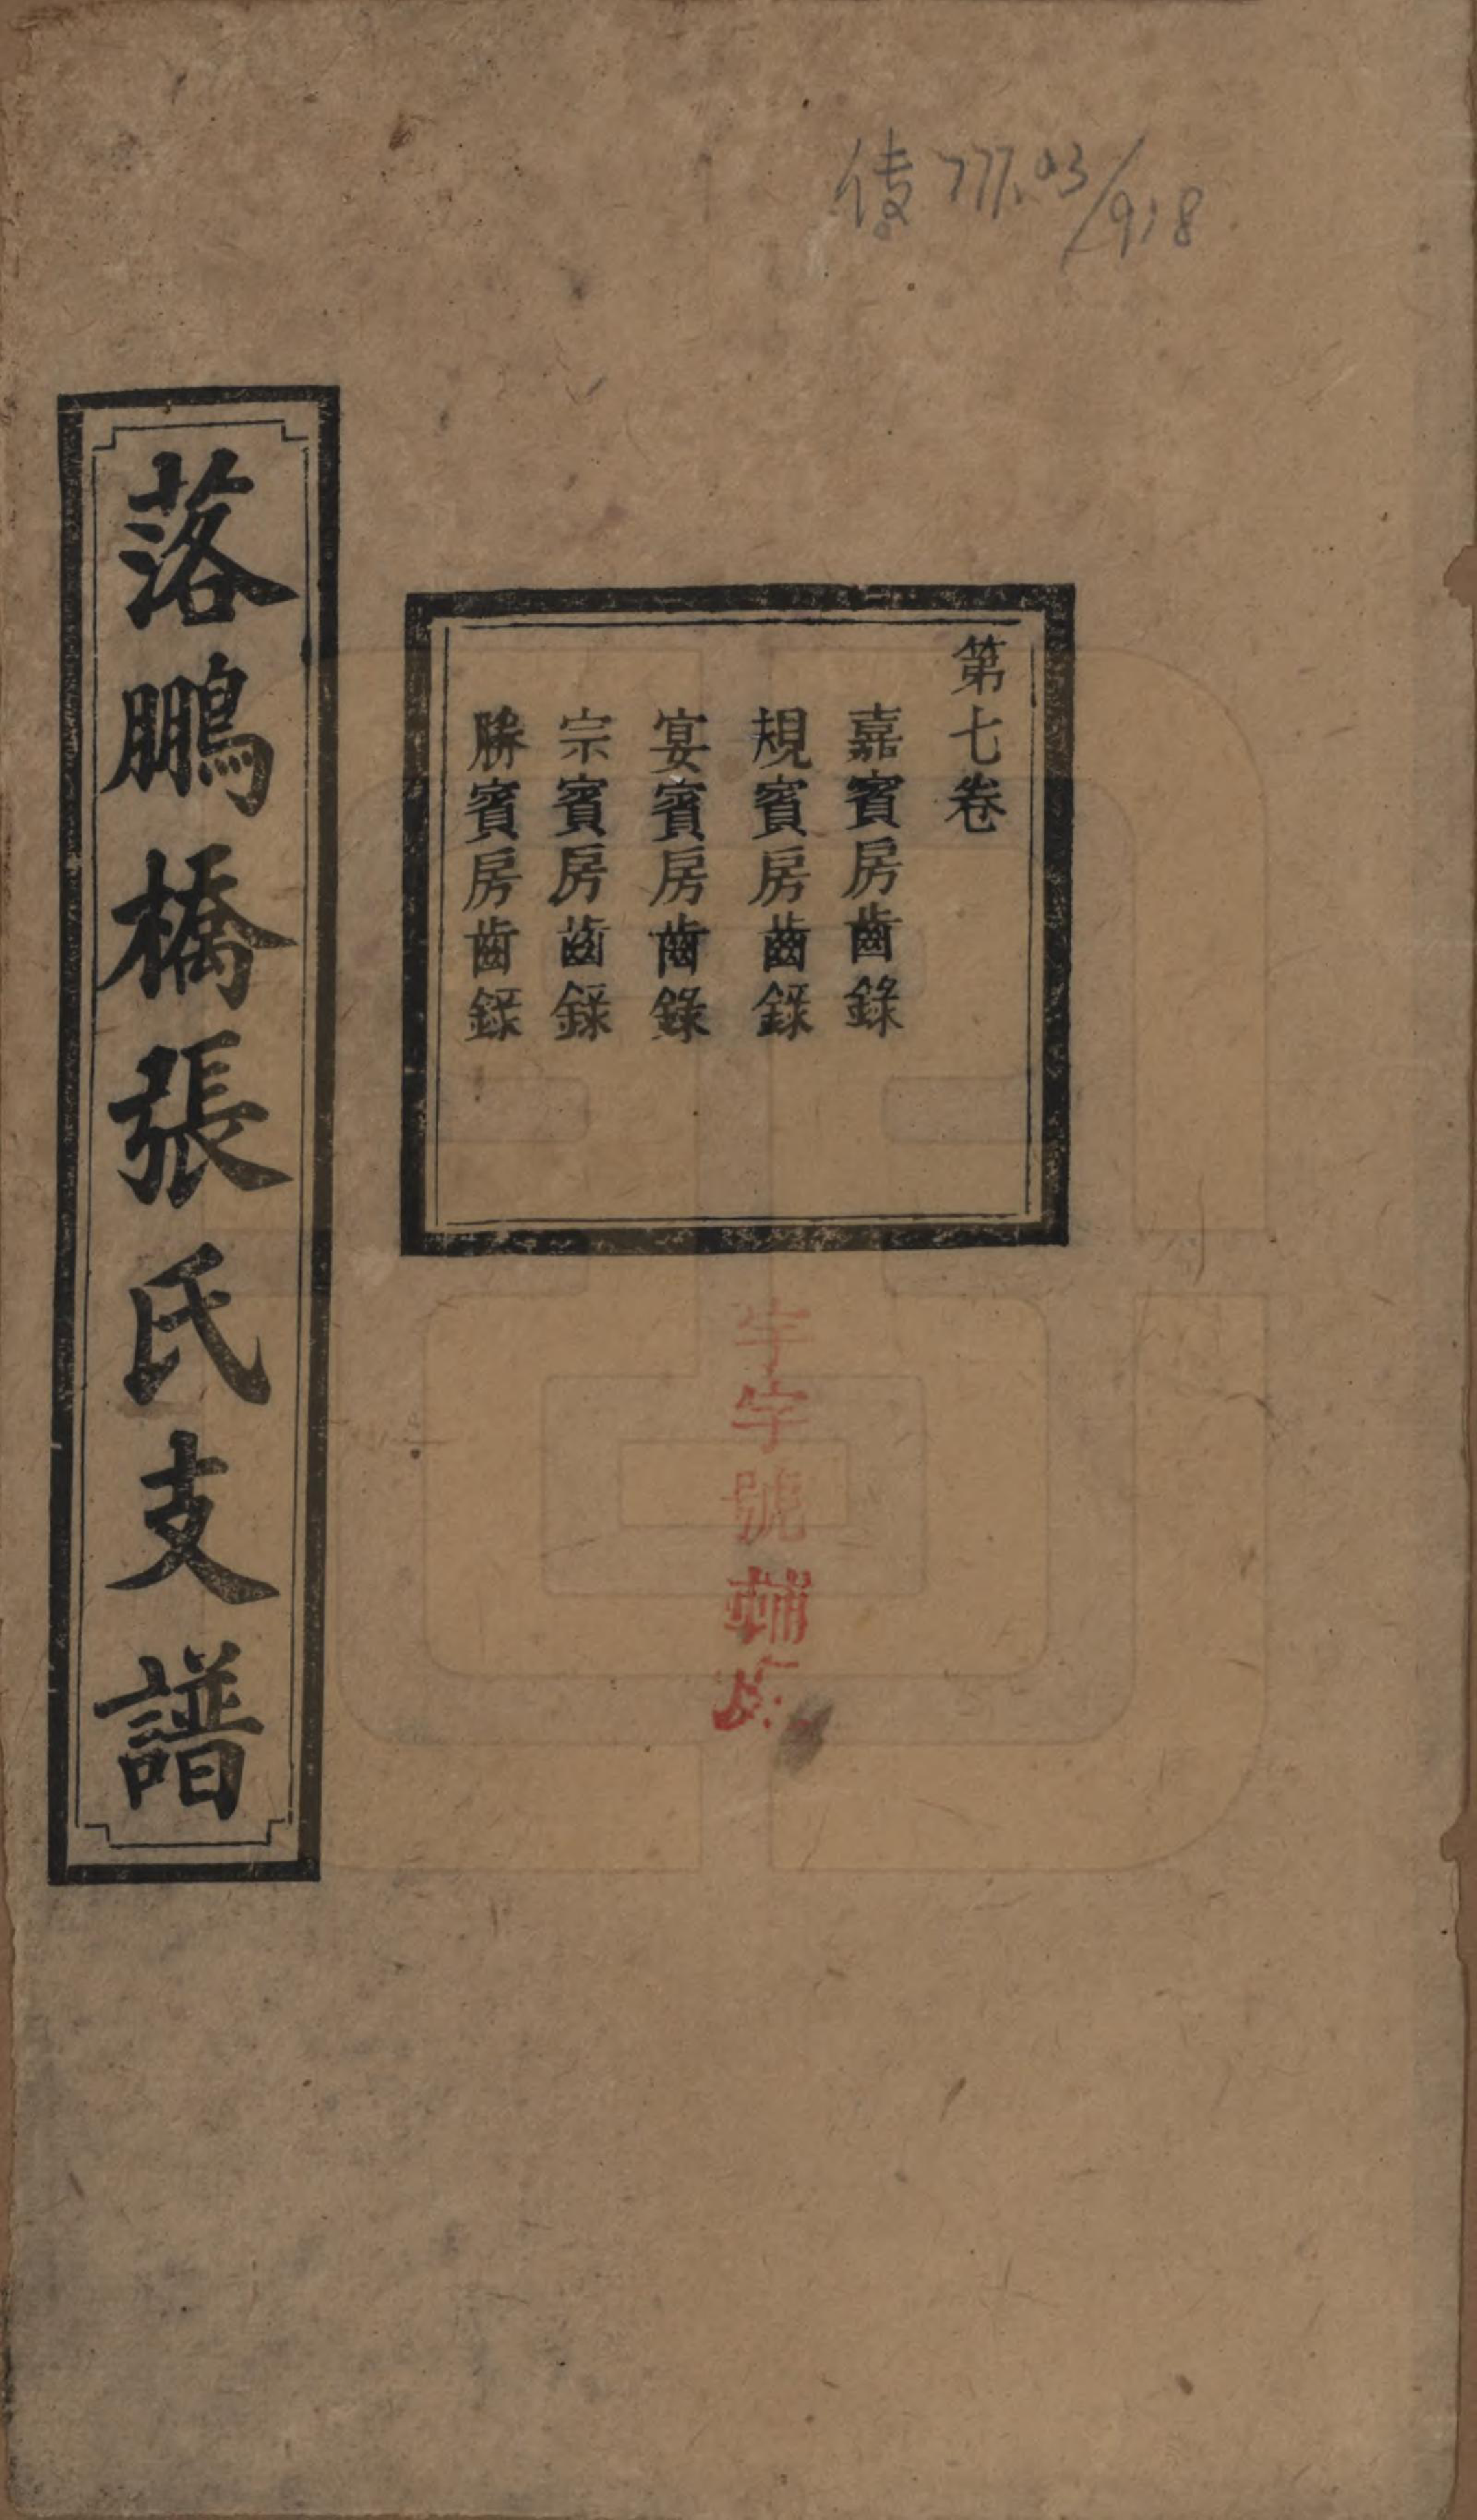 777.03/918
第七卷
嘉賓房齒錄
規賓房齒錄
宴賓房齒錄
宗賓房齒錄
勝賓房齒錄
落鵬橋張氏支譜
宇字號輔